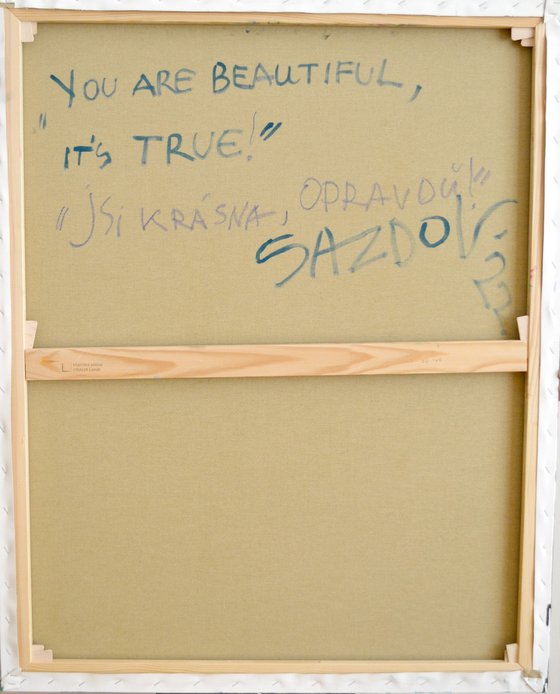 YOU ARE BEAUTIFUL,
"IT'S TRUE!"
"JSi KRÁSNA, OPRAVDU!"
SAZDOV